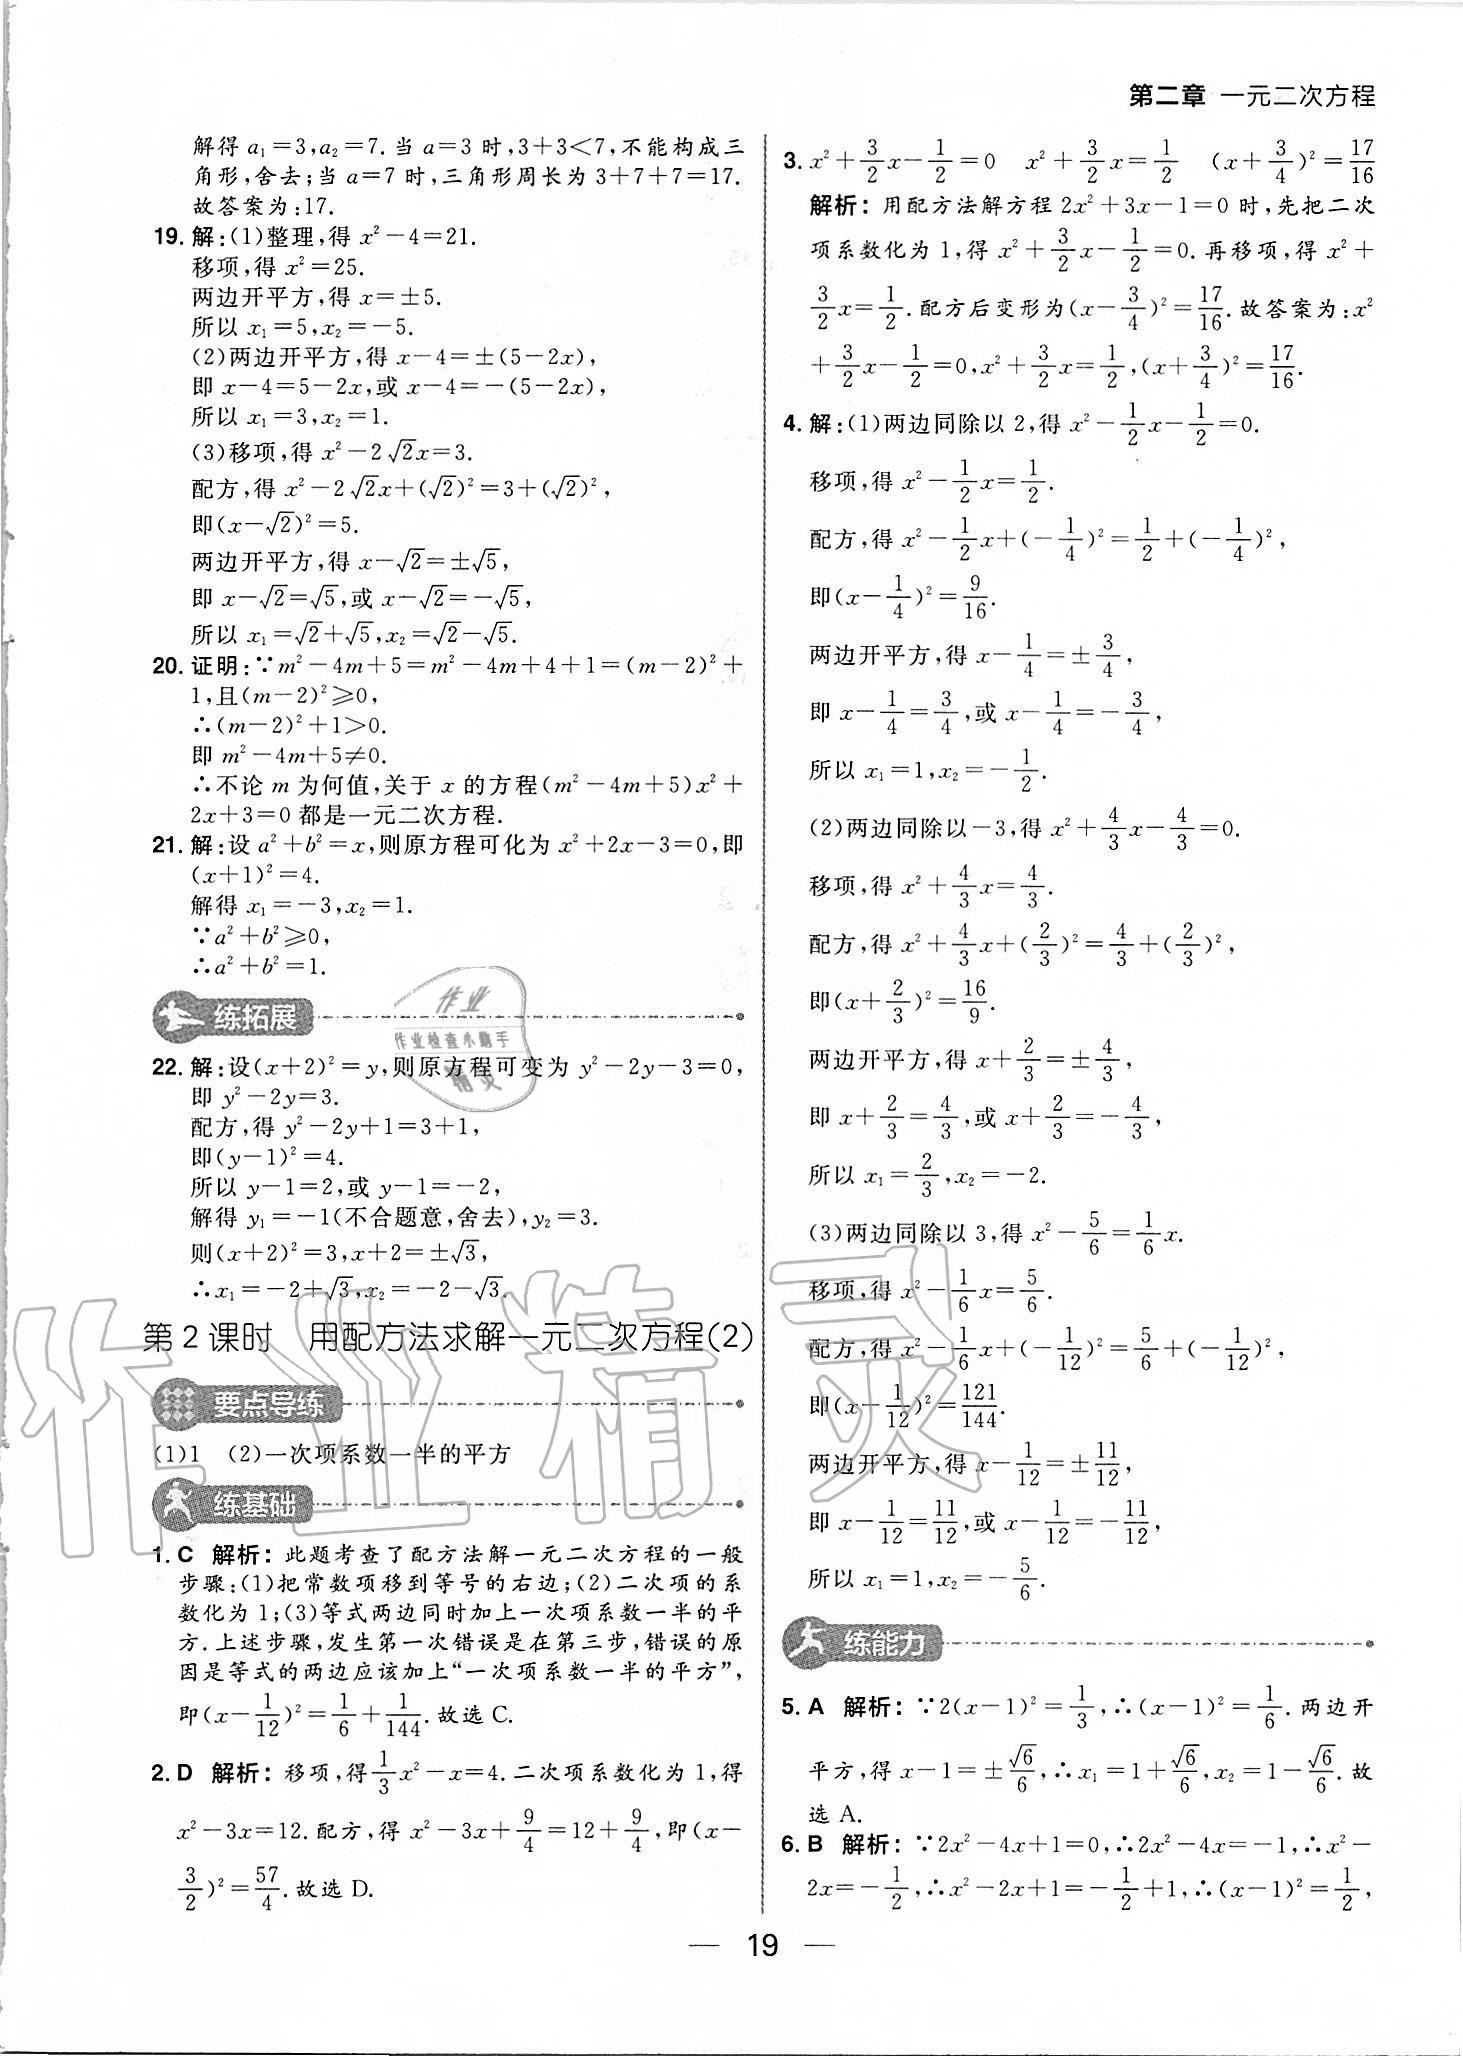 第二章 一元二次方程
解得 a₁=3,a₂=7.当 a=3 时,3+3<7,不能构成三
角形,舍去;当 a=7 时,三角形周长为 3+7+7=17.
故答案为:17.
19. 解:(1)整理,得 x²-4=21.
移项,得 x²=25.
两边开平方,得 x=±5.
所以 x₁=5,x₂=-5.
(2)两边开平方,得 x-4=±(5-2x),
即 x-4=5-2x,或 x-4=-(5-2x),
所以 x₁=3,x₂=1.
(3)移项,得 x²-2√2x=3.
配方,得 x²-2√2x+(√2)²=3+(√2)²,
即(x-√2)²=5.
两边开平方,得 x-√2=±√5,
即 x-√2=√5,或 x-√2=-√5,
所以 x₁=√2+√5,x₂=√2-√5.
20. 证明:∵m²-4m+5=m²-4m+4+1=(m-2)²+
1,且(m-2)²≥0,
∴(m-2)²+1>0.
即 m²-4m+5≠0.
∴不论 m 为何值,关于 x 的方程(m²-4m+5)x²+
2x+3=0 都是一元二次方程.
21. 解:设 a²+b²=x,则原方程可化为 x²+2x-3=0,即
(x+1)²=4.
解得 x₁=-3,x₂=1.
∵a²+b²≥0,
∴a²+b²=1.
练拓展
22. 解:设(x+2)²=y,则原方程可变为 y²-2y-3=0,
即 y²-2y=3.
配方,得 y²-2y+1=3+1,
即(y-1)²=4.
所以 y-1=2,或 y-1=-2,
解得 y₁=-1(不合题意,舍去),y₂=3.
则(x+2)²=3,x+2=±√3,
∴x₁=-2+√3,x₂=-2-√3.
第 2 课时 用配方法求解一元二次方程(2)
要点导练
(1)1 (2)一次项系数一半的平方
练基础
1. C 解析:此题考查了配方法解一元二次方程的一般
步骤:(1)把常数项移到等号的右边;(2)二次项的系
数化为 1;(3)等式两边同时加上一次项系数一半的平
方.上述步骤,发生第一次错误是在第三步,错误的原
因是等式的两边应该加上“一次项系数一半的平方”,
即(x-1/12)²=1/6+1/144.故选 C.
2. D 解析:移项,得1/3x²-x=4.二次项系数化为 1,得
x²-3x=12.配方,得 x²-3x+9/4=12+9/4,即(x-
3/2)²=57/4.故选 D.
3. x²+3/2x-1/2=0 x²+3/2x=1/2 (x+3/4)²=17/16
解析:用配方法解方程 2x²+3x-1=0 时,先把二次
项系数化为 1,得 x²+3/2x-1/2=0.再移项,得 x²+
3/2x=1/2.配方后变形为(x-3/4)²=17/16.故答案为:x²
+3/2x-1/2=0,x²+3/2x=1/2,(x+3/4)²=17/16.
4. 解:(1)两边同除以 2,得 x²-1/2x-1/2=0.
移项,得 x²-1/2x=1/2.
配方,得 x²-1/2x+(-1/4)²=1/2+(-1/4)²,
即(x-1/4)²=9/16.
两边开平方,得 x-1/4=±3/4,
即 x-1/4=3/4,或 x-1/4=-3/4,
所以 x₁=1,x₂=-1/2.
(2)两边同除以-3,得 x²+4/3x-4/3=0.
移项,得 x²+4/3x=4/3.
配方,得 x²+4/3x+(2/3)²=4/3+(2/3)²,
即(x+2/3)²=16/9.
两边开平方,得 x+2/3=±4/3,
即 x+2/3=4/3,或 x+2/3=-4/3,
所以 x₁=2/3,x₂=-2.
(3)两边同除以 3,得 x²-5/6=1/6x.
移项,得 x²-1/6x=5/6.
配方,得 x²-1/6x+(-1/12)²=5/6+(-1/12)²,
即(x-1/12)²=121/144.
两边开平方,得 x-1/12=±11/12,
即 x-1/12=11/12,或 x-1/12=-11/12,
所以 x₁=1,x₂=-5/6.
练能力
5. A 解析:∵2(x-1)²=1/3,∴(x-1)²=1/6.两边开
平方,得 x-1=±√6/6,∴x₁=1+√6/6,x₂=1-√6/6.故
选 A.
6. B 解析:∵2x²-4x+1=0,∴2x²-4x=-1,∴x²-
2x=-1/2,∴x²-2x+1=-1/2+1,∴(x-1)²=1/2,
— 19 —
作业
作业检查小助手
精灵
作业精灵